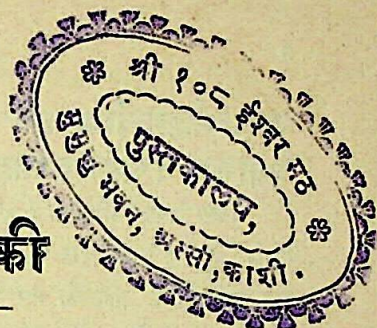 श्री १०८ ईश्वर मठ
पुस्तकालय,
मुमुक्षु भवन, अस्सी, काशी.
की